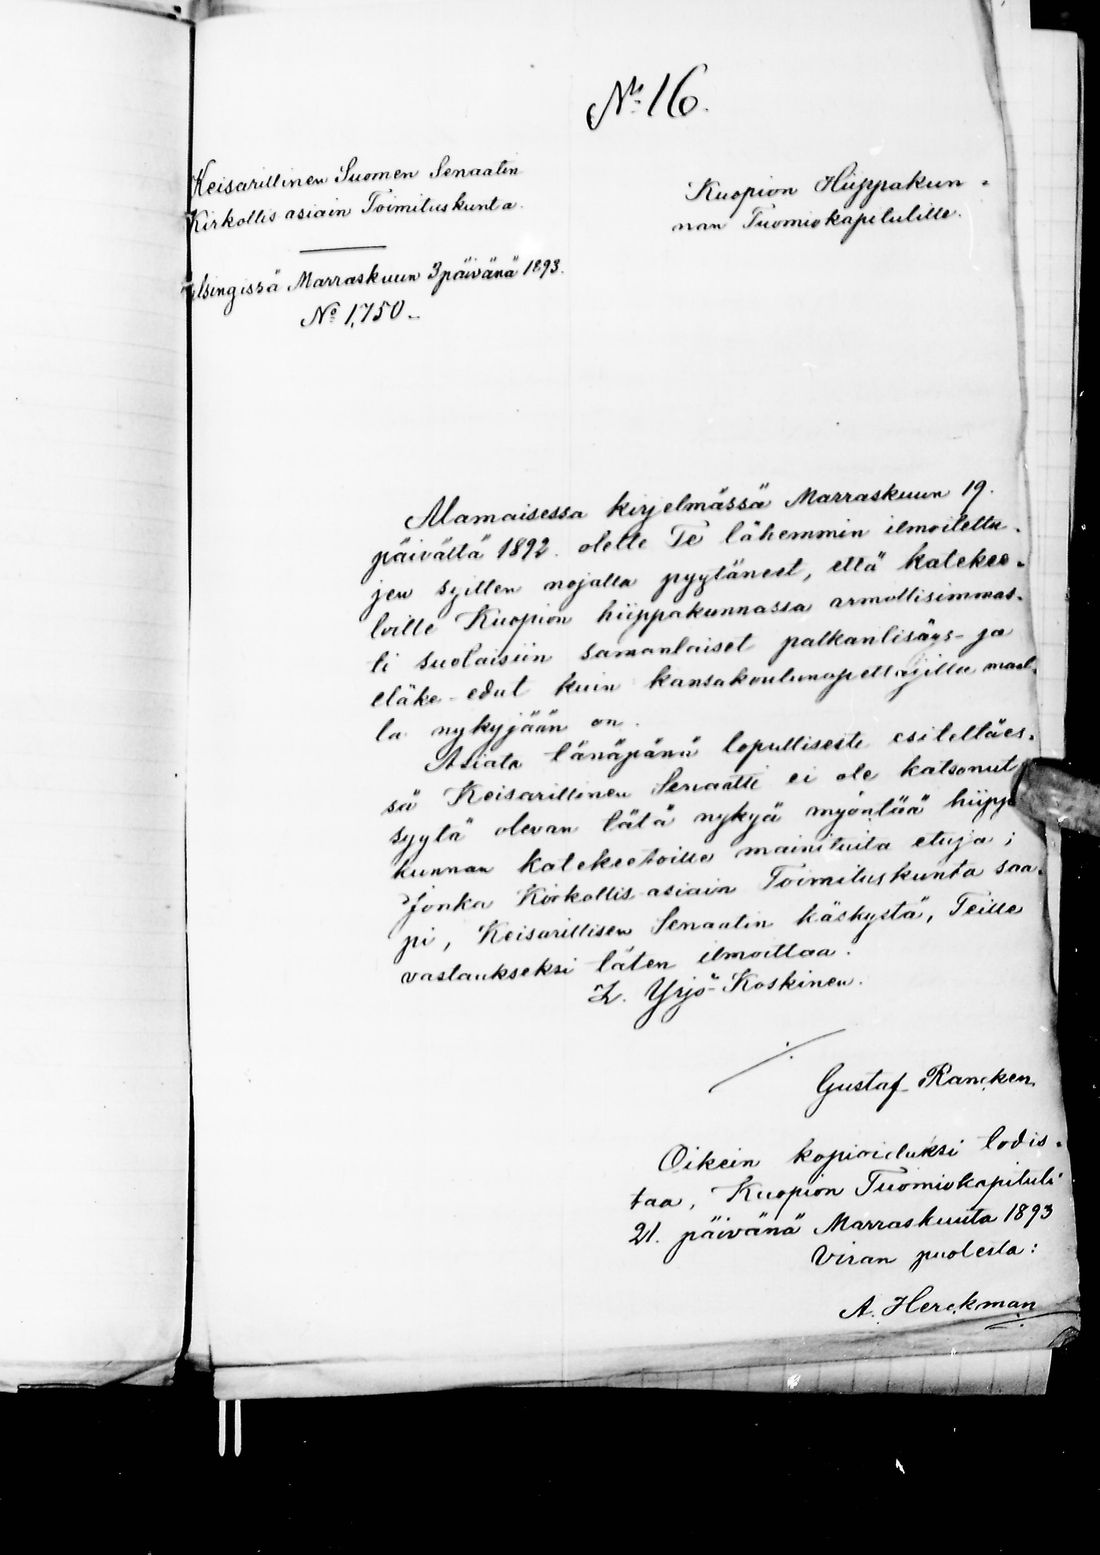 No 16.
Keisarillinen Suomen Senaatin
Kirkollis asiain Toimituskunta.
Helsingissä Marraskuun 3 päivänä 1893.
No 1,750.
Kuopion Hiippakun-
nan Tuomiokapitulille.
Alamaisessa kirjelmässä Marraskuun 19.
päivältä 1892. olette Te lähemmin ilmoitettu-
jen syitten nojalla pyytänest, että katekee-
toille Kuopion hiippakunnassa armollisimmas-
ti suotaisiin samanlaiset palkanlisäys- ja
eläke-edut kuin kansakoulunopettajilla maal-
la nykyjään on.
Asiata tänäpänä lopullisesti esitettäes-
sä Keisarillinen Senaatti ei ole katsonut
syytä olevan tätä nykyä myöntää hiippa
kunnan katekeetoille mainituita etuja;
Jonka Kirkollis asiain Toimituskunta saa-
pi, Keisarillisen Senaatin käskystä, Teille
vastaukseksi täten ilmoittaa.
Z. Yrjö-Koskinen.
Gustaf Rancken
Oikein kopioiduksi todis-
taa, Kuopion Tuomiokapituli
21. päivänä Marraskuuta 1893
Viran puolesta:
A. Herckman